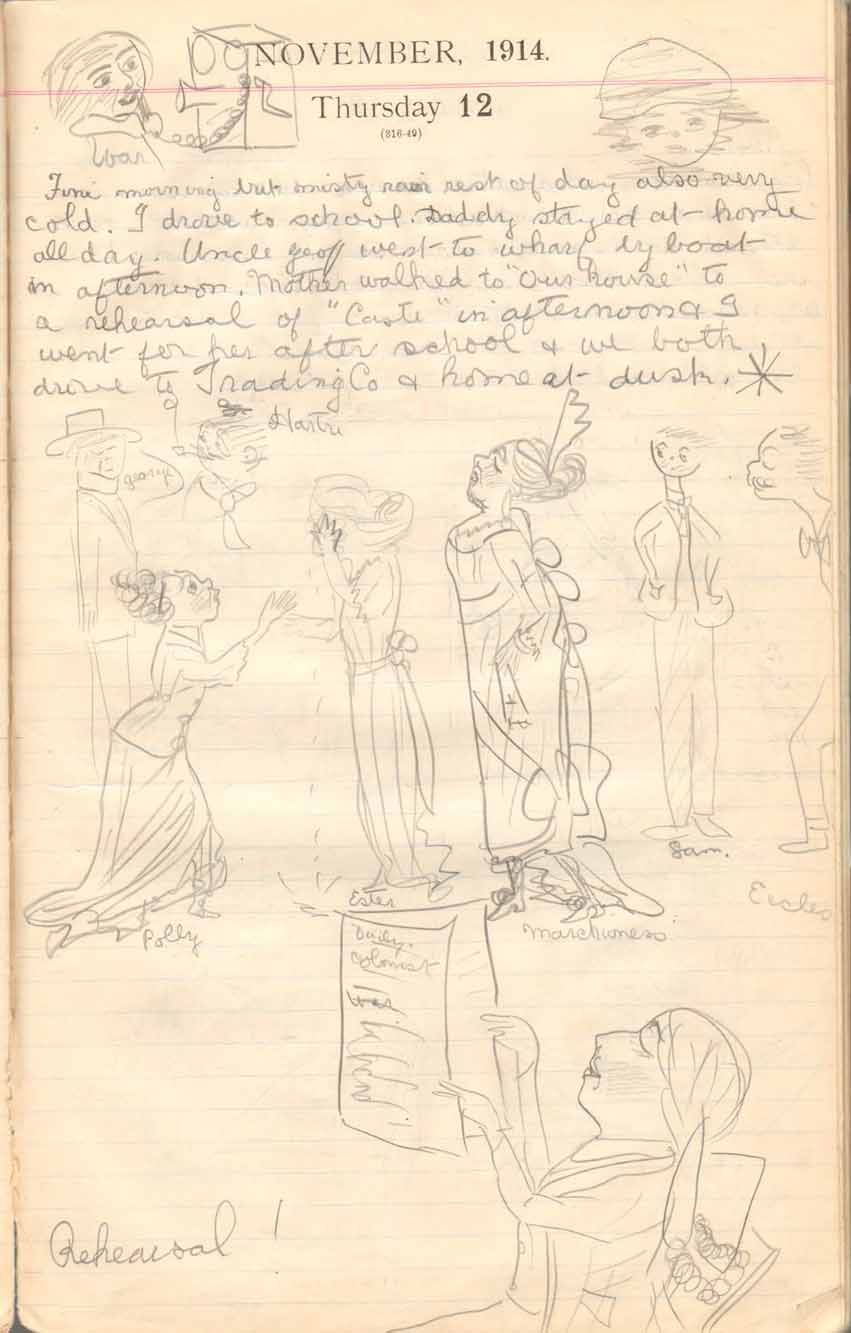 NOVEMBER, 1914.
Thursday 12
(316-49)
War
Fine morning but misty rain rest of day also very
cold. I drove to school. Daddy stayed at home
all day. Uncle Geoff went to wharf by boat
in afternoon. Mother walked to "Our house" to
a rehearsal of "Caste" in afternoon & I
went for her after school & we both
drove to Trading Co & home at dusk.
George
Sam.
Eccles
Ester
Polly
Marchioness
Daily
Colonist
War
Rehearsal !